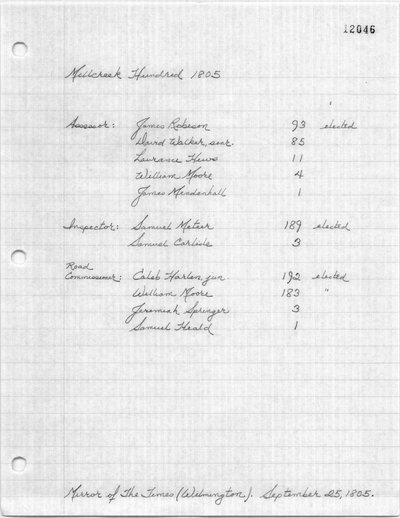 12046
Millcreek Hundred 1805
Assessor: James Robeson 93 elected
David Walker, senr. 85
Laurance Hews 11
William Moore 4
James Mendenhall 1
Inspector: Samuel Meteer 189 elected
Samuel Carlisle 3
Road
Commissioner: Caleb Harlen jun 192 elected
William Moore 183 "
Jeremiah Springer 3
Samuel Heald 1
Mirror of The Times (Wilmington). September 25, 1805.